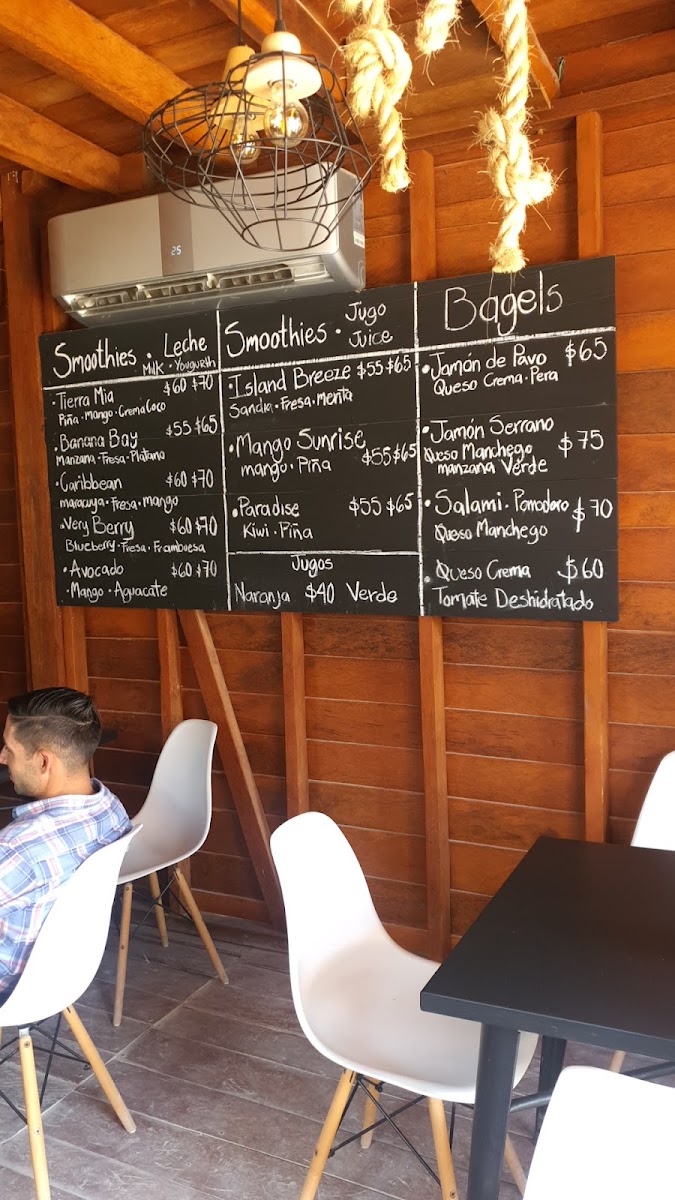 25
Smoothies · Leche
Milk · Yougurth
· Tierra Mia $60 $70
Piña · Mango · Crema Coco
· Banana Bay $55 $65
Manzana · Fresa · Platano
· Caribbean $60 $70
maracuya · Fresa · mango
· Very Berry $60 $70
Blueberry · Fresa · Frambuesa
· Avocado $60 $70
· Mango · Aguacate
Smoothies · Jugo
Juice
· Island Breeze $55 $65
Sandia · Fresa · Menta
· Mango Sunrise
mango · Piña $55 $65
· Paradise $55 $65
Kiwi · Piña
Jugos
Naranja $40 Verde
Bagels
· Jamón de Pavo $65
Queso Crema · Pera
· Jamón Serrano
Queso Manchego $75
manzana Verde
· Salami · Pomodoro $70
Queso Manchego
· Queso Crema $60
Tomate Deshidratado